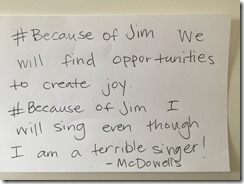 #Because of Jim We
will find opportunities
to create joy.
#Because of Jim I
will sing even though
I am a terrible singer!
- McDowells